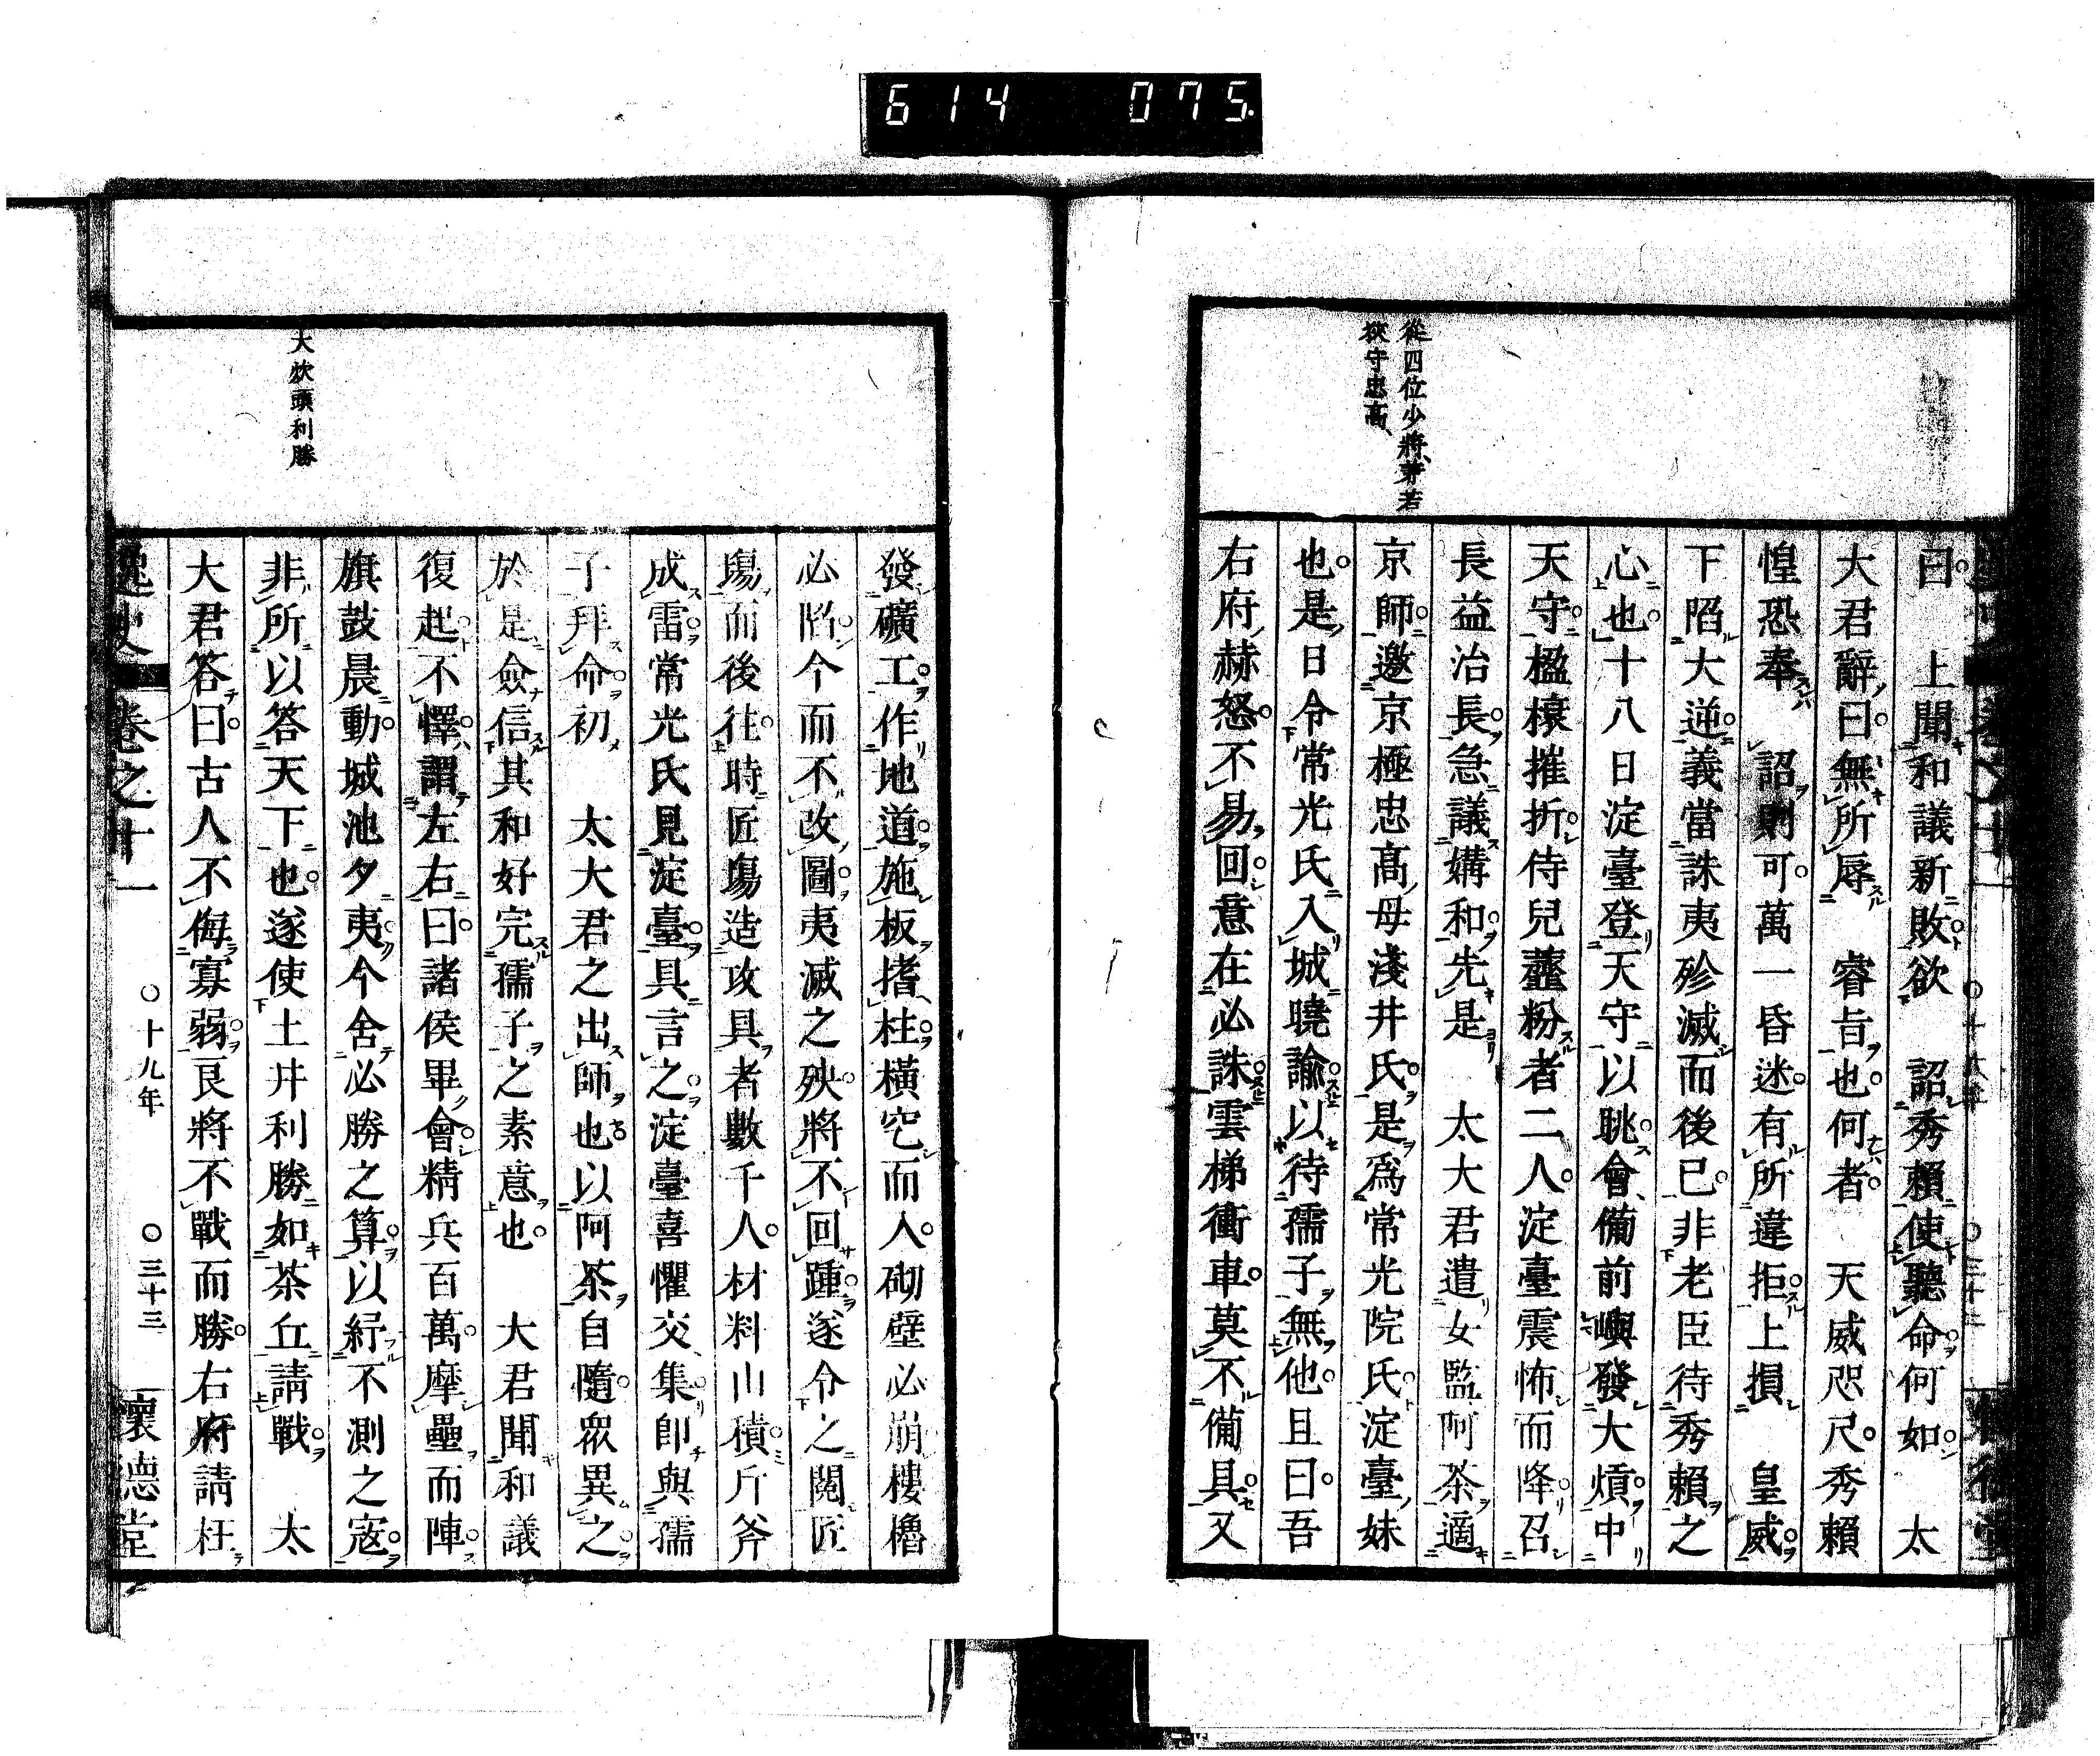 614 075.
從四位少將、若
狹守忠高、
曰 上聞和議新敗欲 詔秀賴使聽命何如 太
大君辭曰無所辱 睿旨也何者 天威咫尺秀賴
惶恐奉 詔則可萬一昏迷有所違拒上損 皇威
下陷大逆義當誅夷殄滅而後已非老臣待秀賴之
心也十八日淀臺登天守以眺會備前嶼發大熕中
天守楹榱摧折侍兒虀粉者二人淀臺震怖而降召
長益治長急議媾和先是 太大君遣女監阿茶適
京師邀京極忠高母淺井氏是爲常光院氏淀臺妹
也是日令常光氏入城曉諭以待孺子無他且曰吾
右府赫怒不易回意在必誅雲梯衝車莫不備具又
發礦工作地道施板搘柱橫空而入砌壁必崩樓櫓
必陷今而不改圖夷滅之殃將不回踵遂令之閱匠
場而後往時匠場造攻具者數千人材料山積斤斧
成雷常光氏見淀臺具言之淀臺喜懼交集卽與孺
子拜命初 太大君之出師也以阿茶自隨衆異之
於是僉信其和好完孺子之素意也 大君聞和議
復起不懌謂左右曰諸侯畢會精兵百萬摩壘而陣
旗鼓晨動城池夕夷今舍必勝之算以紓不測之寇
非所以答天下也遂使土井利勝如茶丘請戰 太
大君答曰古人不侮寡弱良將不戰而勝右府請枉
大炊頭利勝
逸史 卷之十一 ○十九年 ○三十三 懷德堂